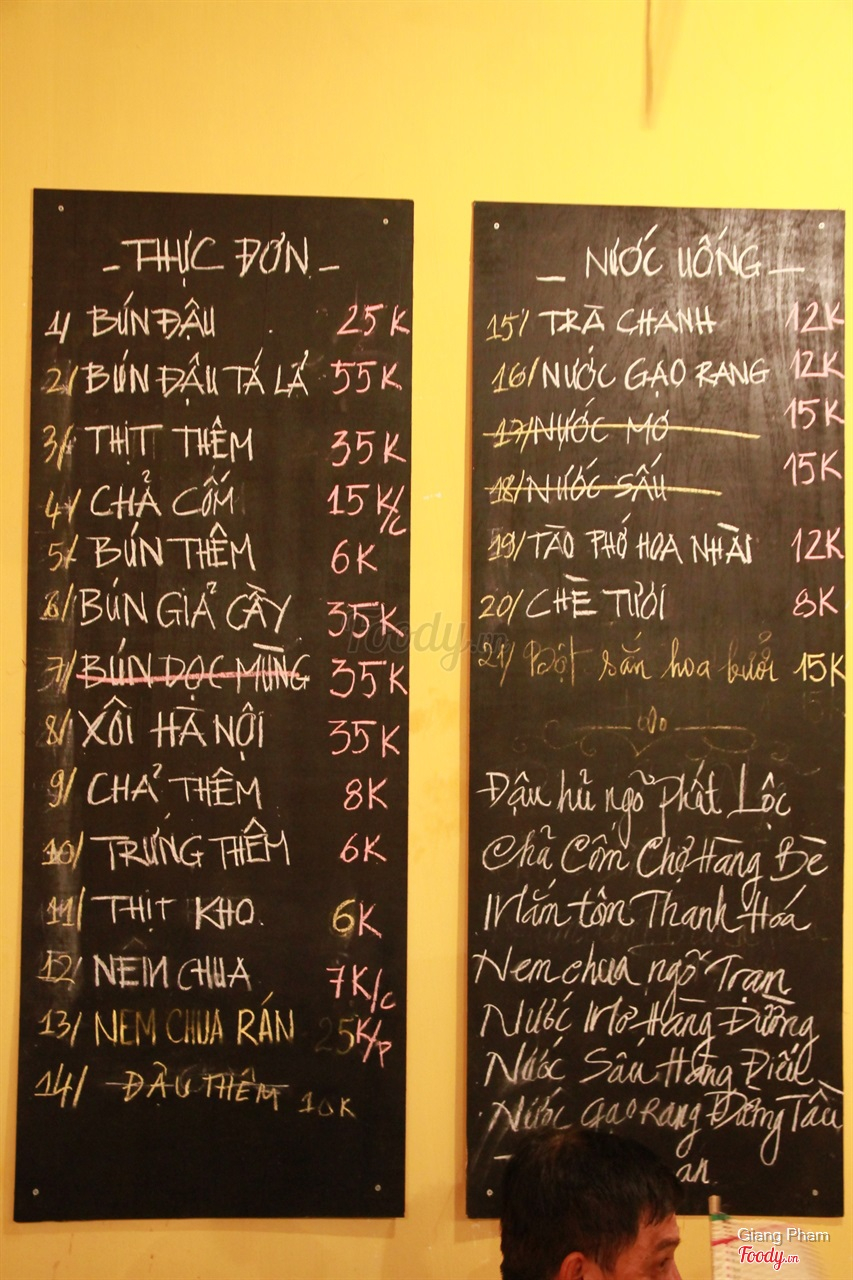 - THỰC ĐƠN -
1/ BÚN ĐẬU 25K
2/ BÚN ĐẬU TÁ LẢ 55K
3/ THỊT THÊM 35K
4/ CHẢ CỐM 15K/C
5/ BÚN THÊM 6K
6/ BÚN GIẢ CẦY 35K
7/ BÚN DỌC MÙNG 35K
8/ XÔI HÀ NỘI 35K
9/ CHẢ THÊM 8K
10/ TRỨNG THÊM 6K
11/ THỊT KHO 6K
12/ NEM CHUA 7K/C
13/ NEM CHUA RÁN 25K/P
14/ ĐẬU THÊM 10K
- NƯỚC UỐNG -
15/ TRÀ CHANH 12K
16/ NƯỚC GẠO RANG 12K
17/ NƯỚC MƠ 15K
18/ NƯỚC SẤU 15K
19/ TÀO PHỚ HOA NHÀI 12K
20/ CHÈ TƯƠI 8K
21/ Bột sắn hoa bưởi 15K
Đậu hủ ngõ Phất Lộc
Chả Cốm Chợ Hàng Bè
Mắm tôm Thanh Hóa
Nem chua ngõ Trạm
Nước Mơ Hàng Đường
Nước Sấu Hàng Điếu
Nước Gạo Rang Đừng Tầu
an
Foody.vn
Giang Pham
Foody.vn